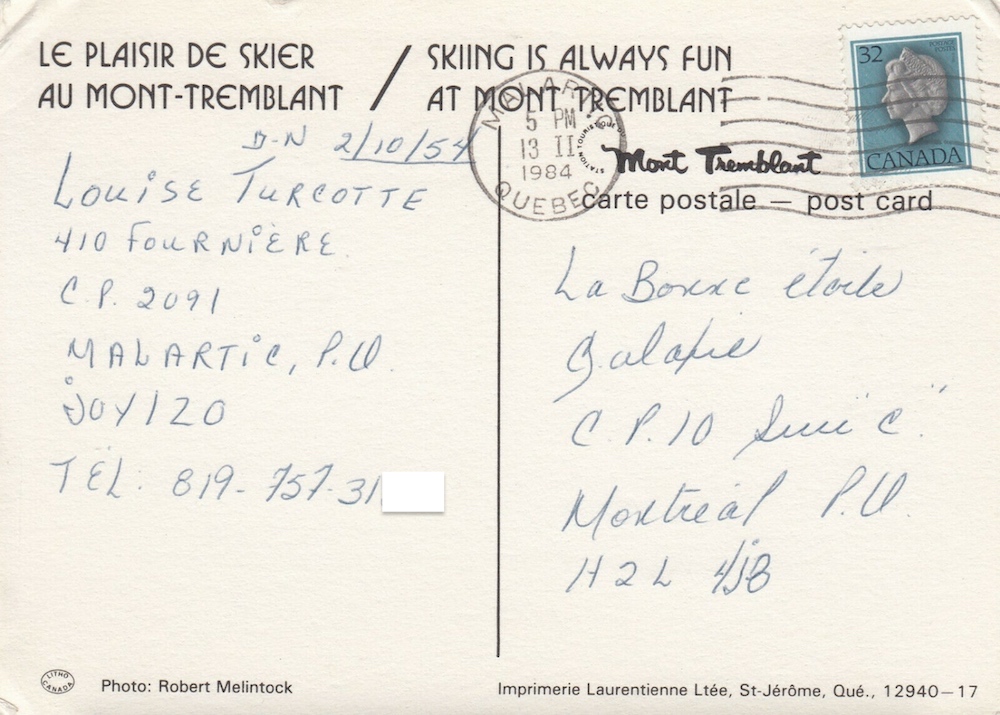 LE PLAISIR DE SKIER
AU MONT-TREMBLANT
/
SKIING IS ALWAYS FUN
AT MONT TREMBLANT
D-N 2/10/54
LOUISE TURCOTTE
410 FOURNIÈRE
C.P. 2091
MALARTIC, P.Q.
JOY 1Z0
TÉL: 819-757-31
MALARTIC
5 PM
13 II
1984
QUEBEC
STATION TOURISTIQUE
Mont Tremblant
carte postale — post card
32
POSTAGE
POSTES
CANADA
La Bonne étoile
C.P. 10 Succ "C"
Montréal P.Q.
H2L 4J8
LITHO
CANADA
Photo: Robert Melintock
Imprimerie Laurentienne Ltée, St-Jérôme, Qué., 12940—17